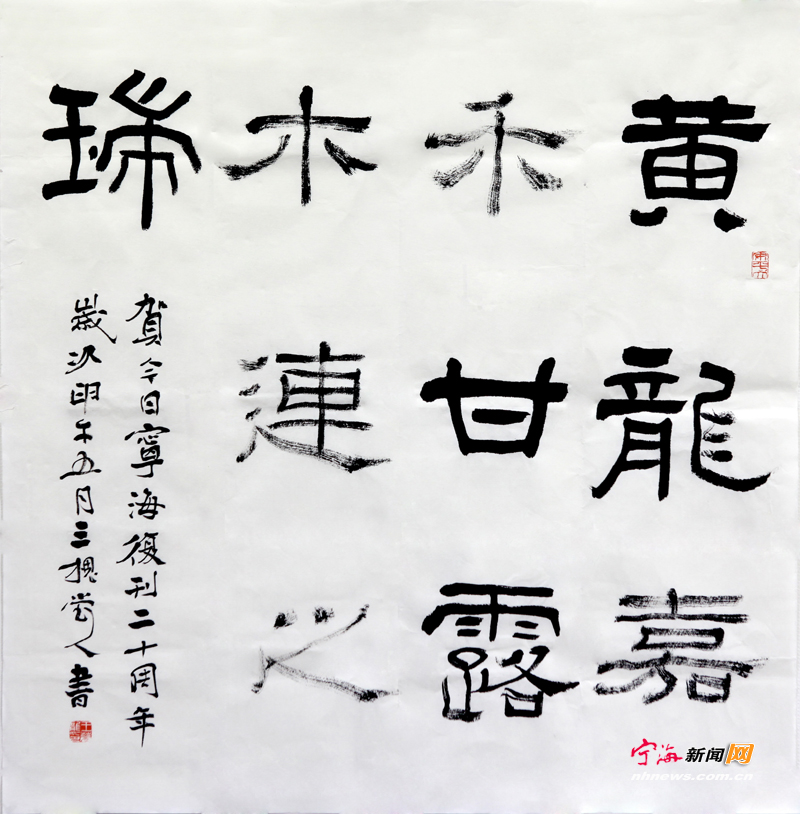 黄龍嘉
禾甘露
木連之
瑞
賀今日寧海復刊二十周年
歲次甲午五月三槐堂人書
宁海新闻网
www.nhnews.com.cn